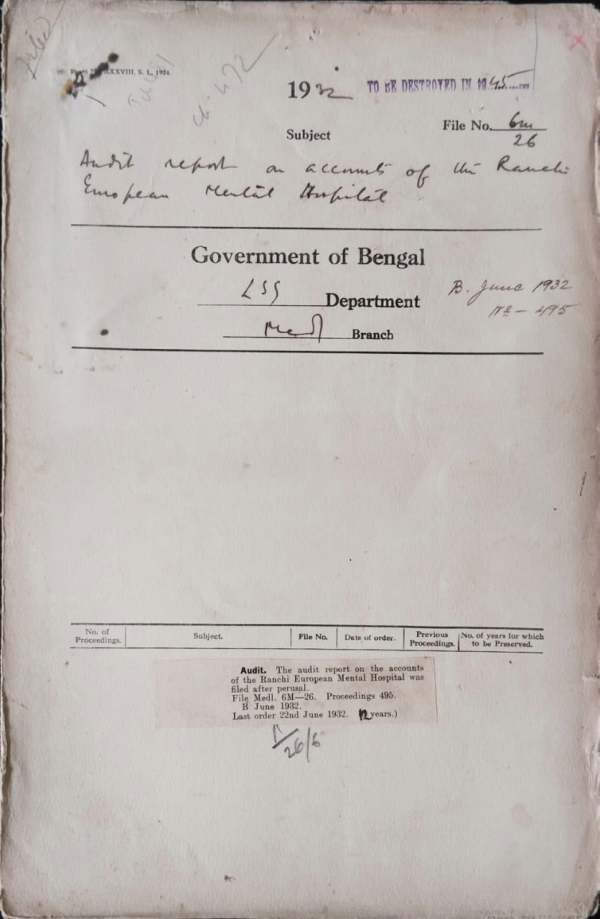 Filed
XXXVIII, S. I., 1924
1932
TO BE DESTROYED IN 1945
Subject
File No. 6m
26
Audit report on accounts of the Ranchi
European Mental Hospital
Government of Bengal
LSG Department
Medl Branch
B. June 1932
No - 495
No. of Proceedings.
Subject.
File No.
Date of order.
Previous Proceedings.
No. of years for which to be Preserved.
Audit. The audit report on the accounts
of the Ranchi European Mental Hospital was
filed after perusal.
File Medl. 6M—26. Proceedings 495.
B June 1932.
Last order 22nd June 1932. 12 years.)
26/6